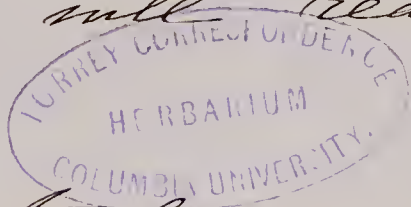 will
TORREY CORRESPONDENCE
HERBARIUM
COLUMBIA UNIVERSITY.